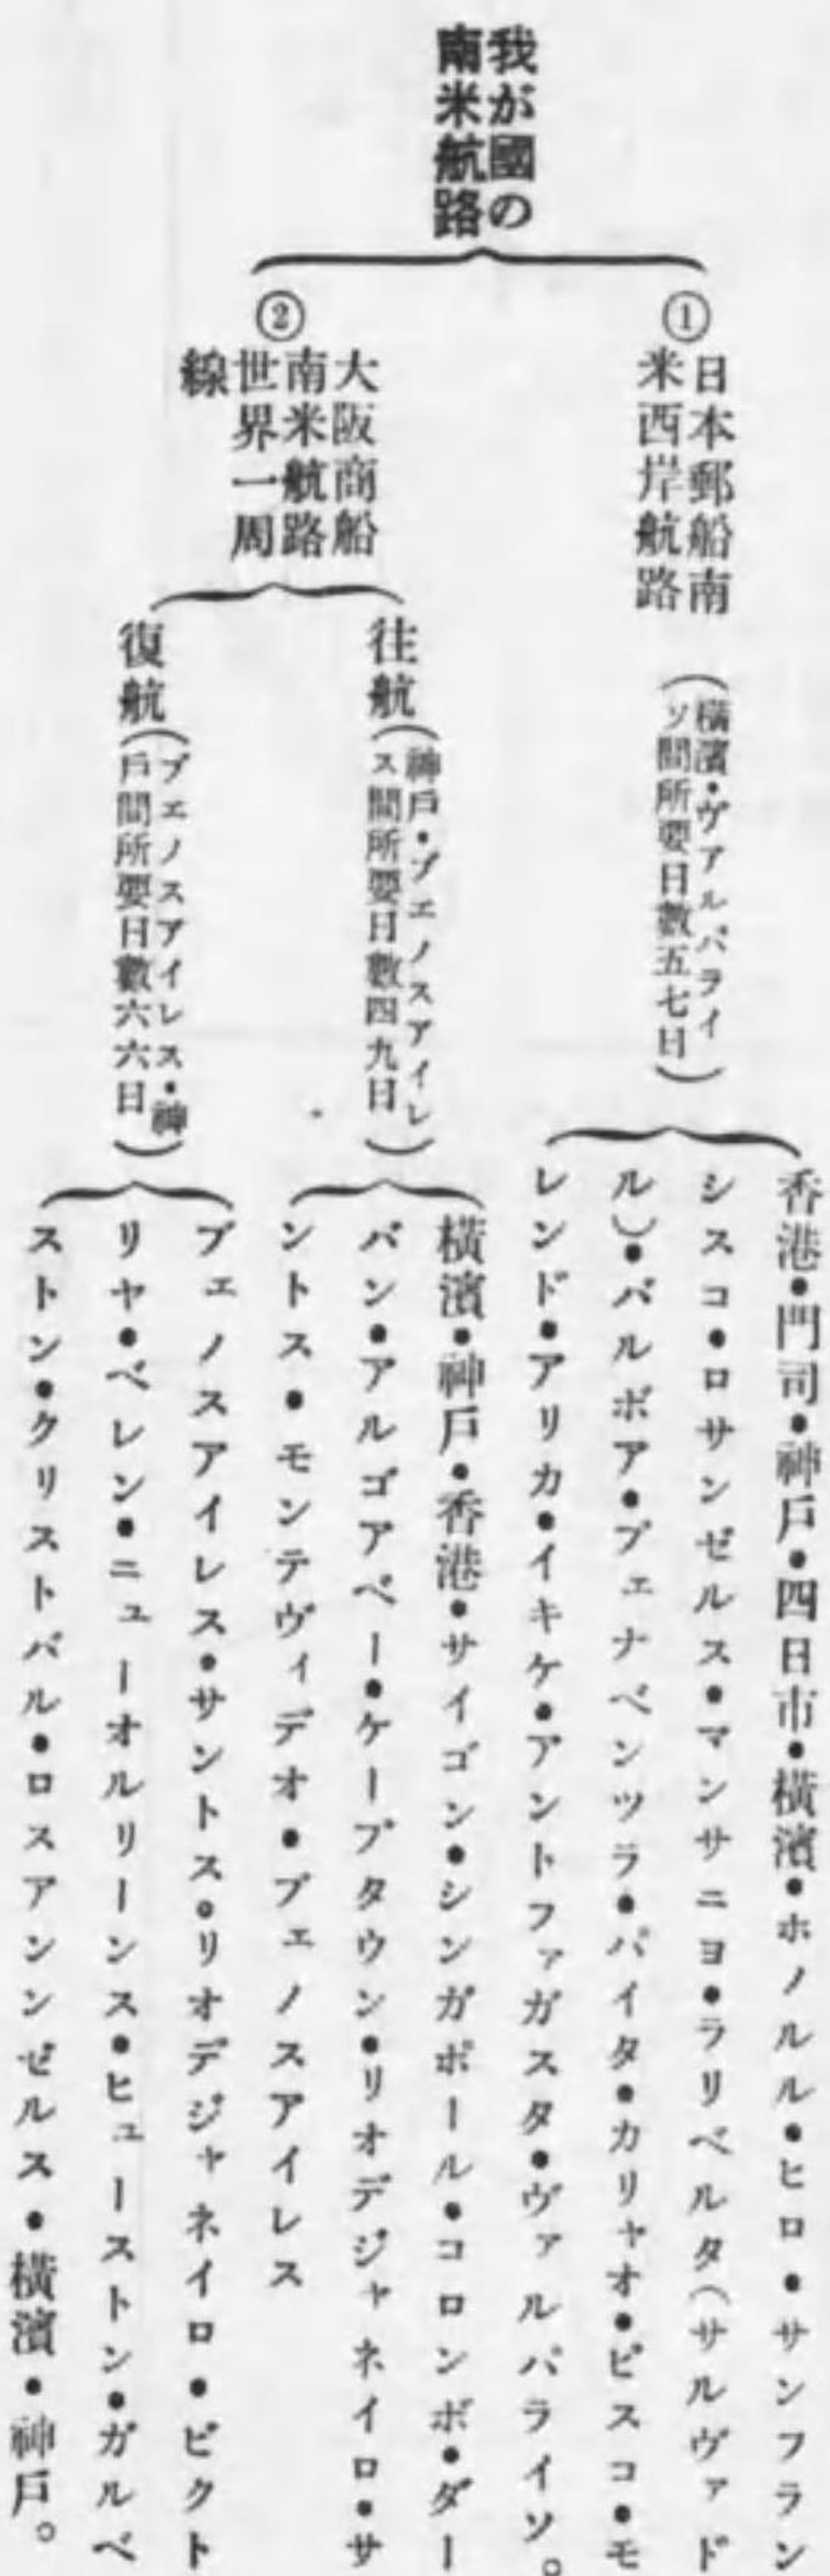 我が國の
南米航路
①
日本郵船南
米西岸航路
(橫濱・ヴアルパライ
ソ間所要日數五七日)
香港・門司・神戶・四日市・橫濱・ホノルル・ヒロ・サンフラン
シスコ・ロサンゼルス・マンサニヨ・ラリベルタ(サルヴァド
ル)・バルボア・ブエナベンツラ・パイタ・カリャオ・ピスコ・モ
レンド・アリカ・イキケ・アントファガスタ・ヴァルパライソ。
②
大阪商船
南米航路
世界一周
線
往航
(神戶・ブエノスアイレ
ス間所要日數四九日)
橫濱・神戶・香港・サイゴン・シンガポール・コロンボ・ダー
バン・アルゴアベー・ケープタウン・リオデジャネイロ・サ
ントス・モンテヴィデオ・ブェノスアイレス
復航
(ブエノスアイレス・神
戶間所要日數六六日)
ブェノスアイレス・サントス。リオデジャネイロ・ビクト
リヤ・ベレン・ニューオルリーンス・ヒューストン・ガルベ
ストン・クリストバル・ロスアンンゼルス・橫濱・神戶。